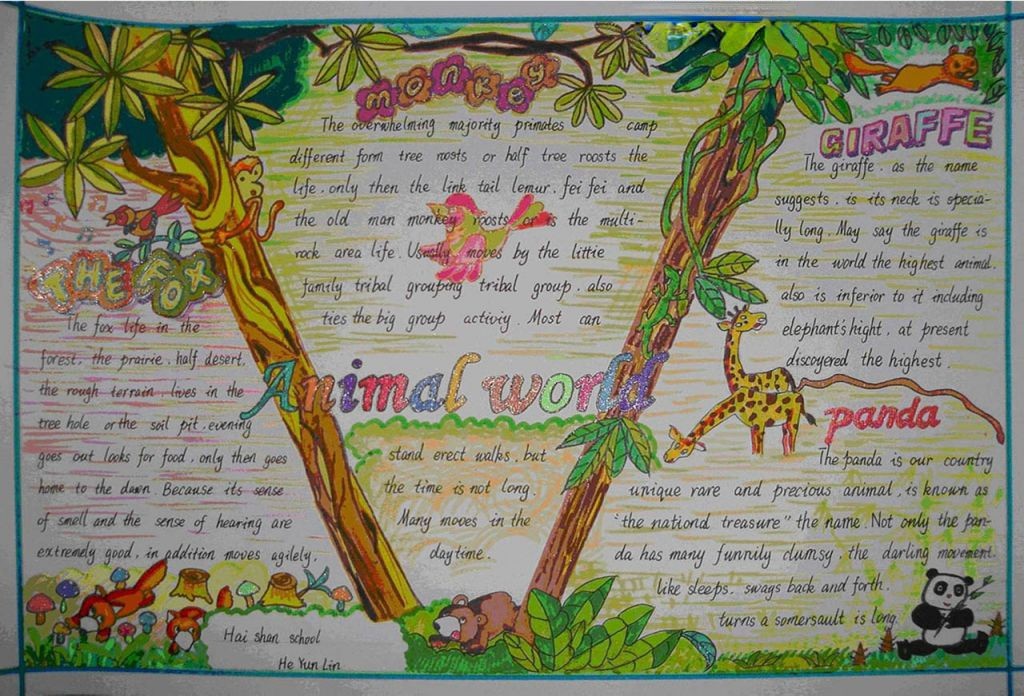 monkey
The overwhelming majority primates camp
different form tree roosts or half tree roosts the
life. only then the link tail lemur. fei fei and
the old man monkey roosts or is the multi-
rock area life. Usually moves by the little
family tribal grouping tribal group. also
ties the big group activiy. Most can
stand erect walks, but
the time is not long.
Many moves in the
daytime.
Animal world
THE FOX
The fox life in the
forest, the prairie, half desert,
the rough terrain, lives in the
tree hole or the soil pit, evening
goes out looks for food, only then goes
home to the dawn. Because its sense
of smell and the sense of hearing are
extremely good, in addition moves agilely.
Hai shan school
He Yun Lin
GIRAFFE
The giraffe, as the name
suggests, is its neck is specia-
lly long. May say the giraffe is
in the world the highest animal.
also is inferior to it including
elephant's hight, at present
discoyered the highest.
panda
The panda is our country
unique rare and precious animal, is known as
"the nationd treasure" the name. Not only the pan-
da has many funnily clumsy, the darling movement.
like sleeps, sways back and forth.
turns a somersault is long.